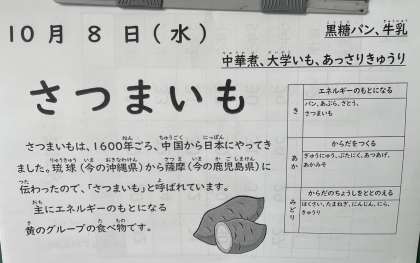 10月8日(水)
黒糖パン、牛乳
中華煮、大学いも、あっさりきゅうり
さつまいも
さつまいもは、1600年ごろ、中国から日本にやってき
ました。琉球(今の沖縄県)から薩摩(今の鹿児島県)に
伝わったので、「さつまいも」と呼ばれています。
主にエネルギーのもとになる
黄のグループの食べ物です。
き
エネルギーのもとになる
パン、あぶら、さとう、
さつまいも
あか
からだをつくる
ぎゅうにゅう、ぶたにく、あつあげ、
あかみそ
みどり
からだのちょうしをととのえる
はくさい、たまねぎ、にんじん、にら、
きゅうり